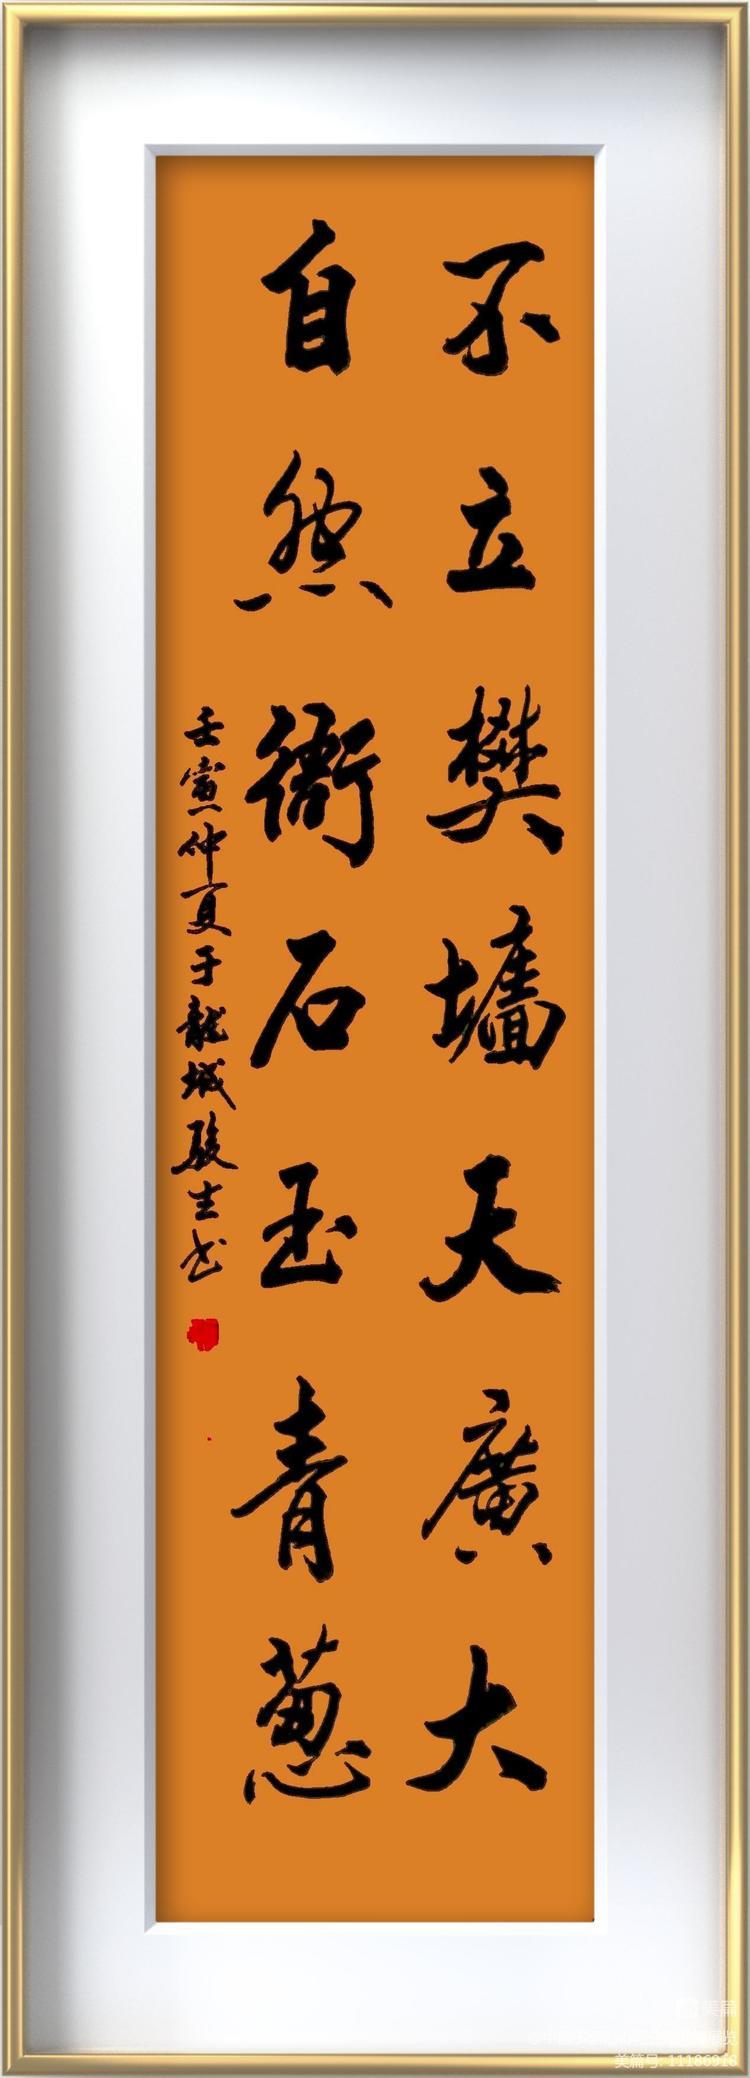 不立樊墙天廣大
自然衙石玉青葱
壬寅仲夏于龍城駿生书
美篇
美篇号: 11186918